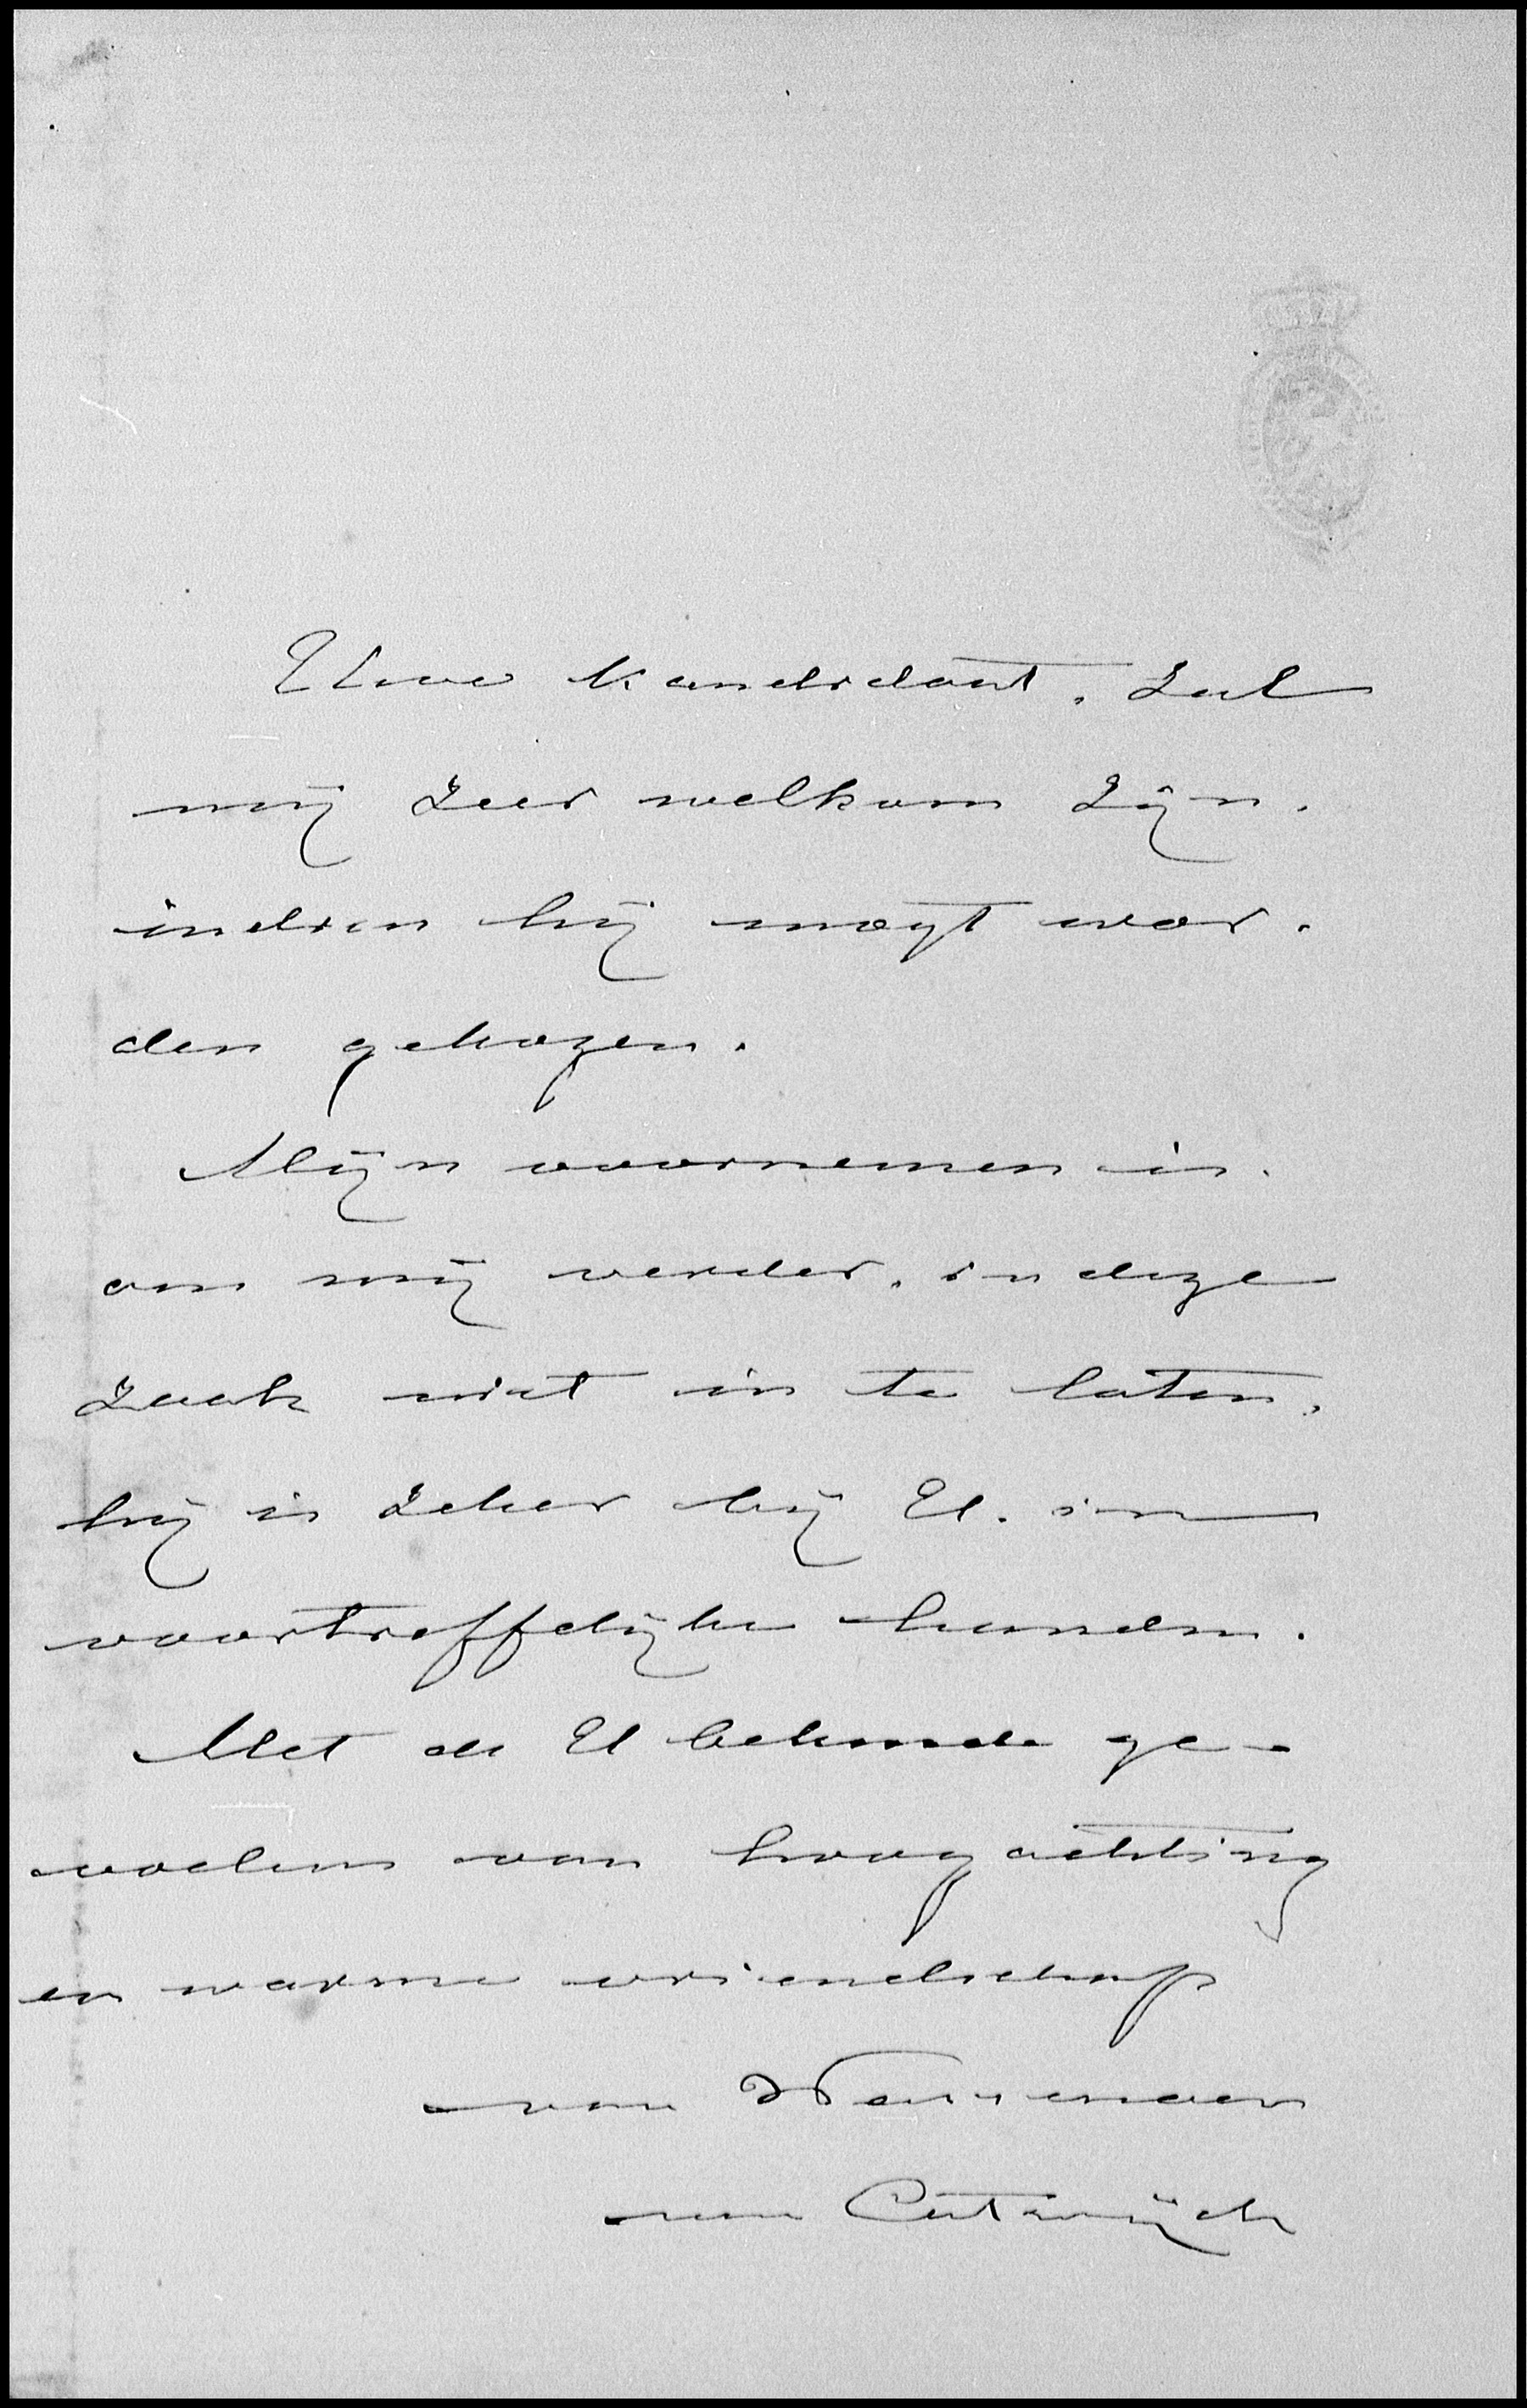 Uwe kandidaat, zal
mij zeer welkom zijn.
indien hij mogt wor-
den gekozen.
Mijn voornemen is
om mij verder, in deze
zaak niet in te laten,
hij is zeker bij U. in
voortreffelijke handen.
Met de U bekende ge-
voelens van hoogachting
en warme vriendschap
van Wassenaer
van Catwijck